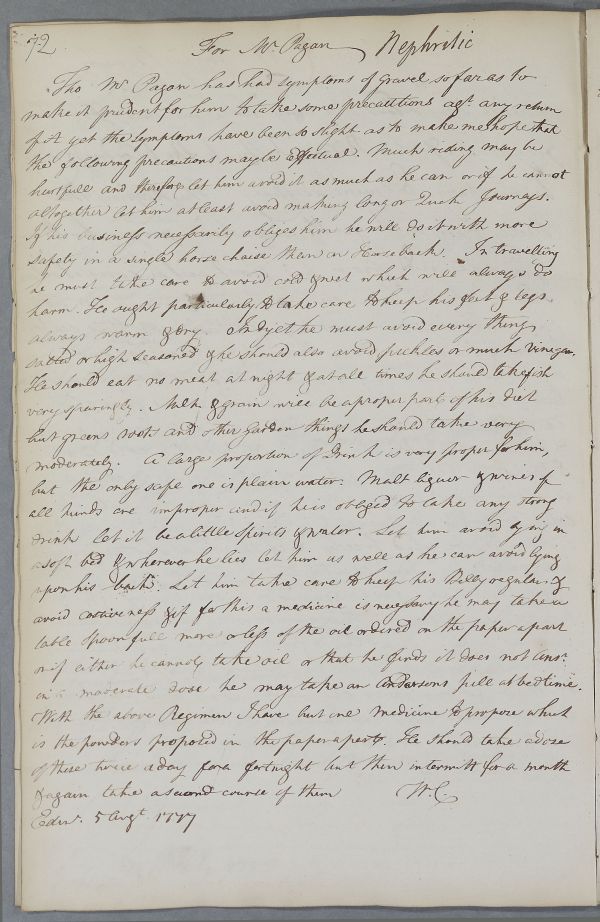 72
For Mr. Pagan Nephritic
Tho Mr Pagan has had symptoms of Gravel so far as to
make it prudent for him to take some precautions agt. any return
of it yet the symptoms have been so slight as to make me hope that
the following precautions may be effectual. Much riding may be
hurtfull and therefore let him avoid it as much as he can or if he cannot
altogether let him at least avoid making long or Quick Journeys.
If his business necessarily obliges him he will do it with more
safety in a single horse chaise than on Horseback. In travelling
he must take care to avoid cold & wet which will always do
harm. He ought particularly to take care to keep his feet & legs
always warm & dry. In dyet he must avoid every thing
salted or high seasoned & he should also avoid pickles or much Vinegar.
He should eat no meat at night & at all times he should take fish
very sparingly. Milk & grain will be a proper part of his diet
but greens roots and other Garden things he should take very
moderately. A large proportion of Drink is very proper for him,
but the only safe one is plain water. Malt liquor & wines of
all kinds are improper and if he is obliged to take any strong
drink let it be a little Spirits & water. Let him avoid lying in
a soft bed & wherever he lies let him as well as he can avoid lying
upon his back. Let him take care to keep his Belly regular &
avoid costiveness & if for this a medicine is necessary he may take a
table spoonfull more or less of the oil ordered on the paper apart
or if either he cannot take oil or that he finds it does not ansr.
in a moderate dose he may take an Andersons pill at bedtime.
With the above Regimen I have but one medicine to propose which
is the powders proposed in the paper apart. He should take a dose
of these twice a day for a fortnight but then intermitt for a month
& again take a second course of them W.C
Edinr. 5 Augt. 1777